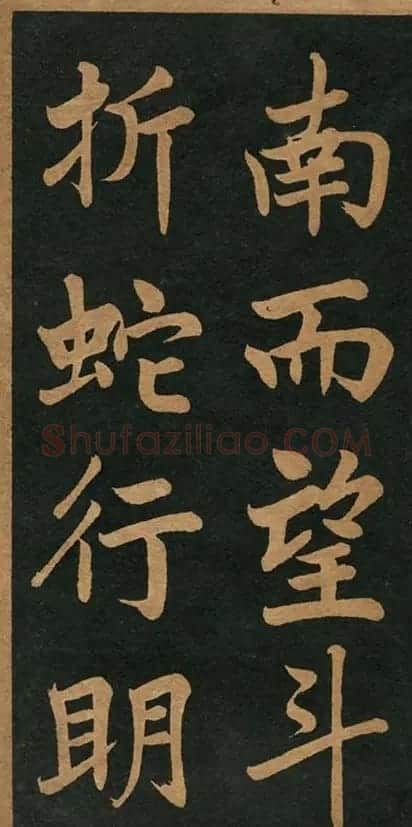 南而望斗
折蛇行明
Shufaziliao.COM